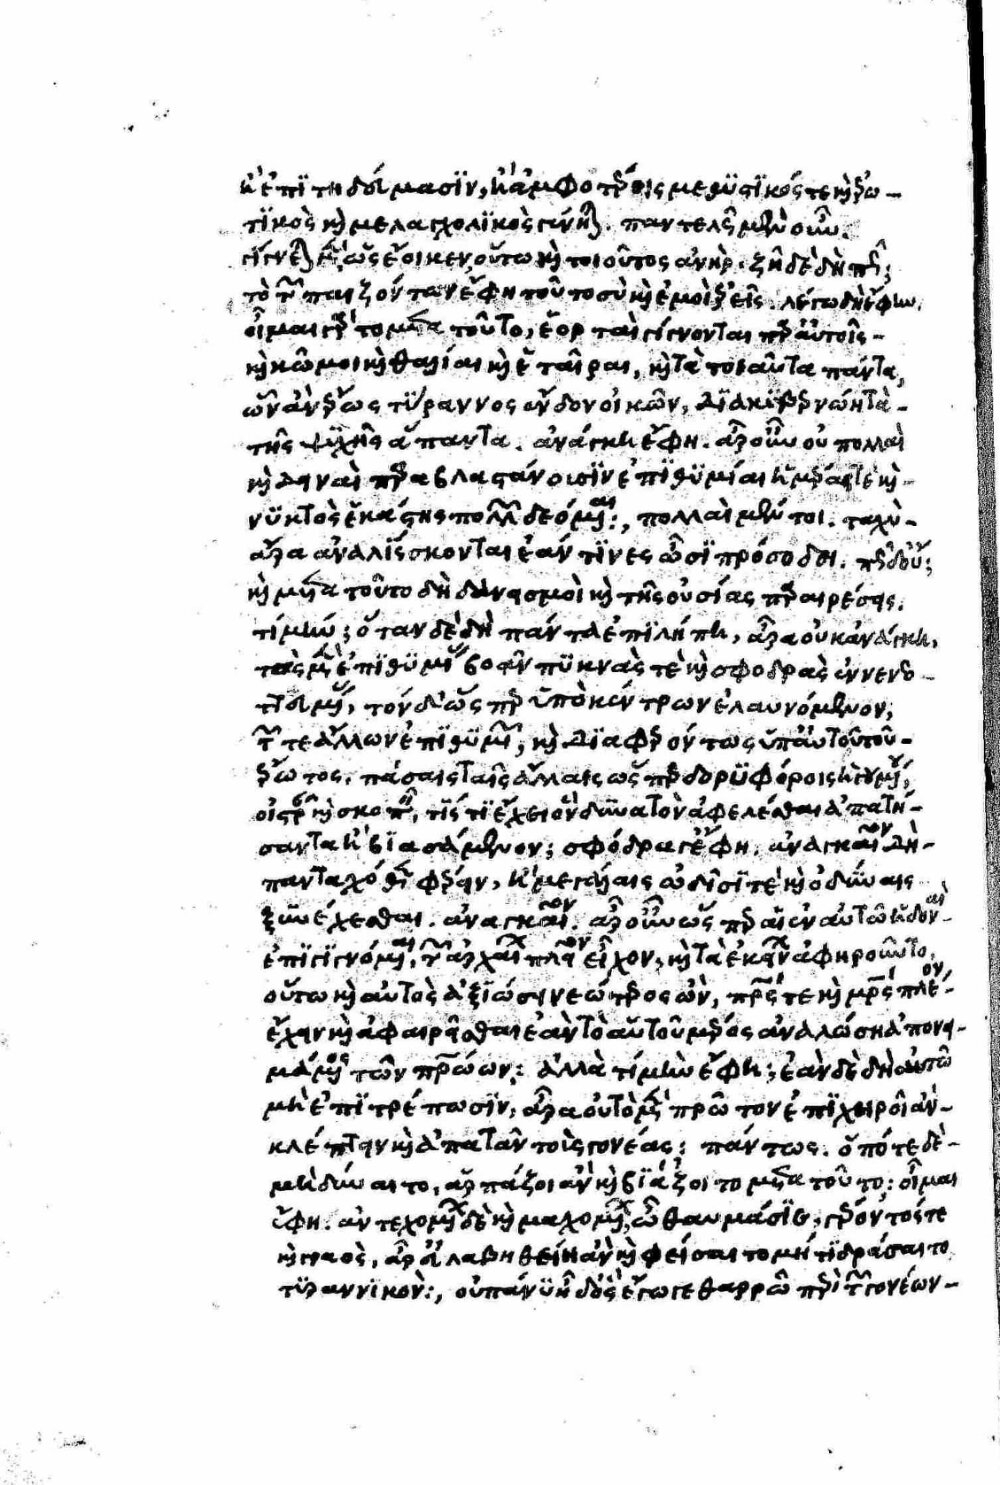 ἢ ἐπιτηδεύμασιν, ἢ ἀμφοτέροις μεθυστικός τε καὶ ἐρω-
τικὸς καὶ μελαγχολικὸς γένηται. παντελῶς μὲν οὖν.
γίγνεται μὲν ὡς ἔοικεν, οὕτω καὶ τοιοῦτος ἀνήρ. ζῇ δὲ δὴ πῶς;
τὸ τῶν παιζόντων ἔφη τοῦτο σὺ καὶ ἐμοὶ ἐρεῖς. λέγω δὴ ἔφην.
οἶμαι γὰρ τὸ μετὰ τοῦτο, ἑορταὶ γίγνονται παρ' αὐτοῖς
καὶ κῶμοι καὶ θαλίαι καὶ ἑταῖραι, καὶ τὰ τοιαῦτα πάντα,
ὧν ἂν ἔρως τύραννος ἔνδον οἰκῶν, διακυβερνῶῃ τὰ
τῆς ψυχῆς ἅπαντα. ἀνάγκη ἔφη. ἆρ' οὖν οὐ πολλαὶ
καὶ δειναὶ παραβλαστάνουσιν ἐπιθυμίαι ἡμέρας τε καὶ
νυκτὸς ἑκάστης πολλῶν δεόμεναι; πολλαὶ μέντοι. ταχὺ
ἄρα ἀναλίσκονται ἐάν τινες ὦσι πρόσοδοι. πῶς δ' οὔ;
καὶ μετὰ τοῦτο δὴ δανεισμοὶ καὶ τῆς οὐσίας παραιρέσεις.
τί μήν; ὅταν δὲ δὴ πάντα ἐπιλίπῃ, ἆρα οὐκ ἀνάγκη,
τὰς μὲν ἐπιθυμίας βοᾶν πυκνάς τε καὶ σφοδρὰς ἐννενεο-
τευμένας, τὸν δ' ὥσπερ ὑπὸ κέντρων ἐλαυνόμενον,
τῶν τε ἄλλων ἐπιθυμιῶν, καὶ διαφερόντως ὑπ' αὐτοῦ τοῦ
ἔρωτος, πάσαις ταῖς ἄλλαις ὥσπερ δορυφόροις ἡγουμένου,
οἰστρᾶν καὶ σκοπεῖν, τίς τι ἔχει ὃν δυνατὸν ἀφελέσθαι ἀπατή-
σαντα ἢ βιασάμενον; σφόδρα γ' ἔφη. ἀναγκαῖον δὴ
πανταχόθεν φέρειν, ἢ μεγάλαις ὠδῖσί τε καὶ ὀδύναις
ξυνέχεσθαι. ἀναγκαῖον. ἆρ' οὖν ὥσπερ αἱ ἐν αὐτῷ ἡδοναὶ
ἐπιγιγνόμεναι, τῶν ἀρχαίων πλέον εἶχον, καὶ τὰ ἐκείνων ἀφῃροῦντο,
οὕτω καὶ αὐτὸς ἀξιώσει νεώτερος ὤν, πατρός τε καὶ μητρὸς πλέον
ἔχειν καὶ ἀφαιρεῖσθαι ἐὰν τὸ αὑτοῦ μέρος ἀναλώσῃ ἀπονει-
μάμενος τῶν πατρῴων; ἀλλὰ τί μὴν ἔφη; ἐὰν δὲ δὴ αὐτῷ
μὴ ἐπιτρέπωσιν, ἆρα οὐ τὸ μὲν πρῶτον ἐπιχειροῖ ἂν
κλέπτειν καὶ ἀπατᾶν τοὺς γονέας; πάντως. ὁπότε δὲ
μὴ δύναιτο, ἁρπάζοι ἂν καὶ βιάζοιτο μετὰ τοῦτο; οἶμαι
ἔφη. ἀντεχομένων δὲ καὶ μαχομένων, ὦ θαυμάσιε, γέροντός τε
καὶ γραός, ἆρ' εὐλαβηθείη ἂν καὶ φείσαιτο μή τι δρᾶσαι τῶν
τυραννικῶν; οὐ πάνυ ἦ δ' ὃς ἔγωγε θαρρῶ περὶ τῶν γονέων